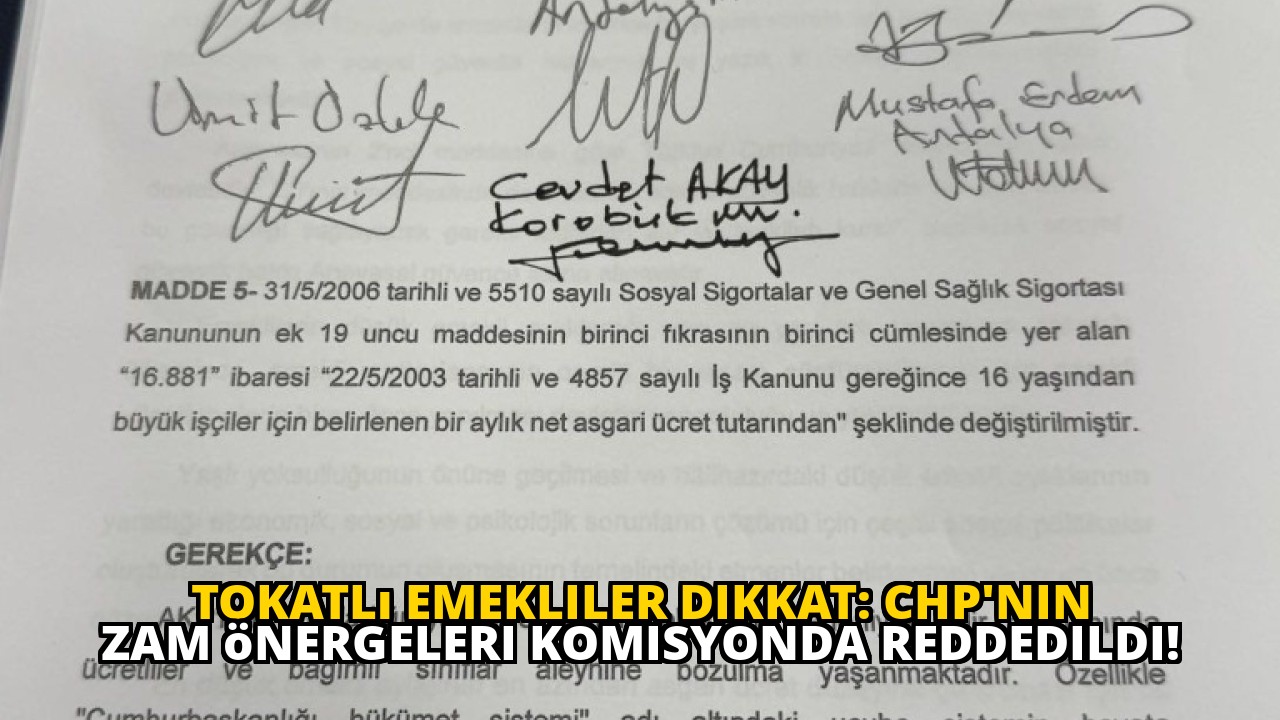 Antalya
Ümit Özlale
Mustafa Erdem
Antalya
Cevdet AKAY
Karabük mv.
MADDE 5- 31/5/2006 tarihli ve 5510 sayılı Sosyal Sigortalar ve Genel Sağlık Sigortası
Kanununun ek 19 uncu maddesinin birinci fıkrasının birinci cümlesinde yer alan
“16.881” ibaresi “22/5/2003 tarihli ve 4857 sayılı İş Kanunu gereğince 16 yaşından
büyük işçiler için belirlenen bir aylık net asgari ücret tutarından" şeklinde değiştirilmiştir.
GEREKÇE:
TOKATLı EMEKLILER DIKKAT: CHP'NIN
ZAM öNERGELERI KOMISYONDA REDDEDILDI!
ücretliler ve bağımlı sınıflar aleyhine bozulma yaşanmaktadır. Özellikle
"Cumhurbaşkanlığı hükümet sistemi" adı altındaki